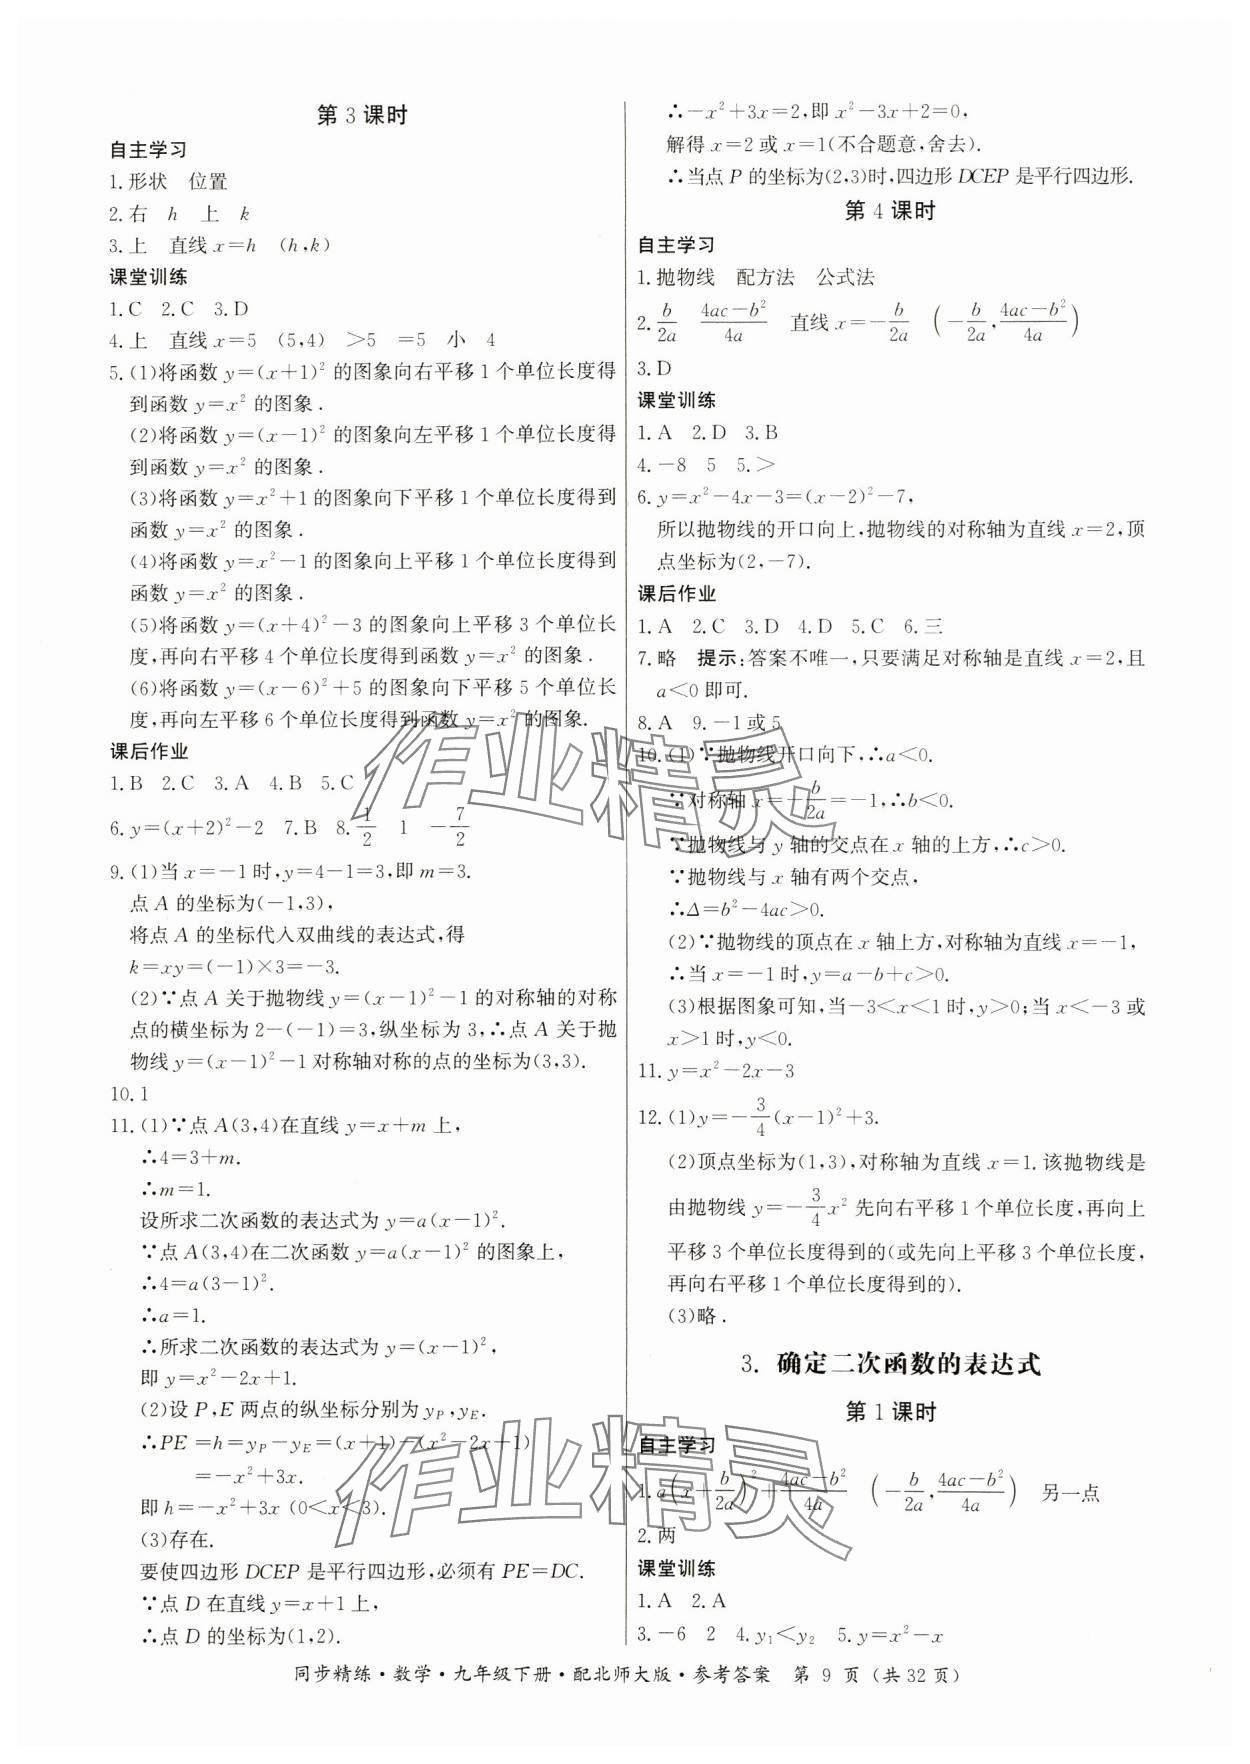 第3课时
自主学习
1.形状　位置
2.右　h　上　k
3.上　直线 x=h　(h,k)
课堂训练
1.C　2.C　3.D
4.上　直线 x=5　(5,4)　>5　=5　小　4
5.(1)将函数 y=(x+1)² 的图象向右平移1个单位长度得
到函数 y=x² 的图象.
(2)将函数 y=(x-1)² 的图象向左平移1个单位长度得
到函数 y=x² 的图象.
(3)将函数 y=x²+1的图象向下平移1个单位长度得到
函数 y=x² 的图象.
(4)将函数 y=x²-1的图象向上平移1个单位长度得到
函数 y=x² 的图象.
(5)将函数 y=(x+4)²-3的图象向上平移3个单位长
度,再向右平移4个单位长度得到函数 y=x² 的图象.
(6)将函数 y=(x-6)²+5的图象向下平移5个单位长
度,再向左平移6个单位长度得到函数 y=x² 的图象.
课后作业
1.B　2.C　3.A　4.B　5.C
6.y=(x+2)²-2　7.B　8.1/2　1　-7/2
9.(1)当 x=-1时,y=4-1=3,即 m=3.
点 A 的坐标为(-1,3),
将点 A 的坐标代入双曲线的表达式,得
k=xy=(-1)×3=-3.
(2)∵点 A 关于抛物线 y=(x-1)²-1的对称轴的对称
点的横坐标为2-(-1)=3,纵坐标为3,∴点 A 关于抛
物线 y=(x-1)²-1对称轴对称的点的坐标为(3,3).
10.1
11.(1)∵点 A(3,4)在直线 y=x+m 上,
∴4=3+m.
∴m=1.
设所求二次函数的表达式为 y=a(x-1)².
∵点 A(3,4)在二次函数 y=a(x-1)² 的图象上,
∴4=a(3-1)².
∴a=1.
∴所求二次函数的表达式为 y=(x-1)²,
即 y=x²-2x+1.
(2)设 P,E 两点的纵坐标分别为 y_P,y_E.
∴PE=h=y_P-y_E=(x+1)-(x²-2x+1)
=-x²+3x.
即 h=-x²+3x (0<x<3).
(3)存在.
要使四边形 DCEP 是平行四边形,必须有 PE=DC.
∵点 D 在直线 y=x+1上,
∴点 D 的坐标为(1,2).
∴-x²+3x=2,即 x²-3x+2=0,
解得 x=2或 x=1(不合题意,舍去).
∴当点 P 的坐标为(2,3)时,四边形 DCEP 是平行四边形.
第4课时
自主学习
1.抛物线　配方法　公式法
2.b/2a　(4ac-b²)/4a　直线 x=-b/2a　(-b/2a,(4ac-b²)/4a)
3.D
课堂训练
1.A　2.D　3.B
4.-8　5　5.>
6.y=x²-4x-3=(x-2)²-7,
所以抛物线的开口向上,抛物线的对称轴为直线 x=2,顶
点坐标为(2,-7).
课后作业
1.A　2.C　3.D　4.D　5.C　6.三
7.略　提示:答案不唯一,只要满足对称轴是直线 x=2,且
a<0即可.
8.A　9.-1或5
10.(1)∵抛物线开口向下,∴a<0.
∵对称轴 x=-b/2a=-1,∴b<0.
∵抛物线与 y 轴的交点在 x 轴的上方,∴c>0.
∵抛物线与 x 轴有两个交点,
∴Δ=b²-4ac>0.
(2)∵抛物线的顶点在 x 轴上方,对称轴为直线 x=-1,
∴当 x=-1时,y=a-b+c>0.
(3)根据图象可知,当-3<x<1时,y>0;当 x<-3或
x>1时,y<0.
11.y=x²-2x-3
12.(1)y=-3/4(x-1)²+3.
(2)顶点坐标为(1,3),对称轴为直线 x=1.该抛物线是
由抛物线 y=-3/4x² 先向右平移1个单位长度,再向上
平移3个单位长度得到的(或先向上平移3个单位长度,
再向右平移1个单位长度得到的).
(3)略.
3. 确定二次函数的表达式
第1课时
自主学习
1.a(x+b/2a)²+(4ac-b²)/4a　(-b/2a,(4ac-b²)/4a)　另一点
2.两
课堂训练
1.A　2.A
3.-6　2　4.y₁<y₂　5.y=x²-x
同步精练·数学·九年级下册·配北师大版·参考答案　第9页(共32页)
作业精灵
作业精灵